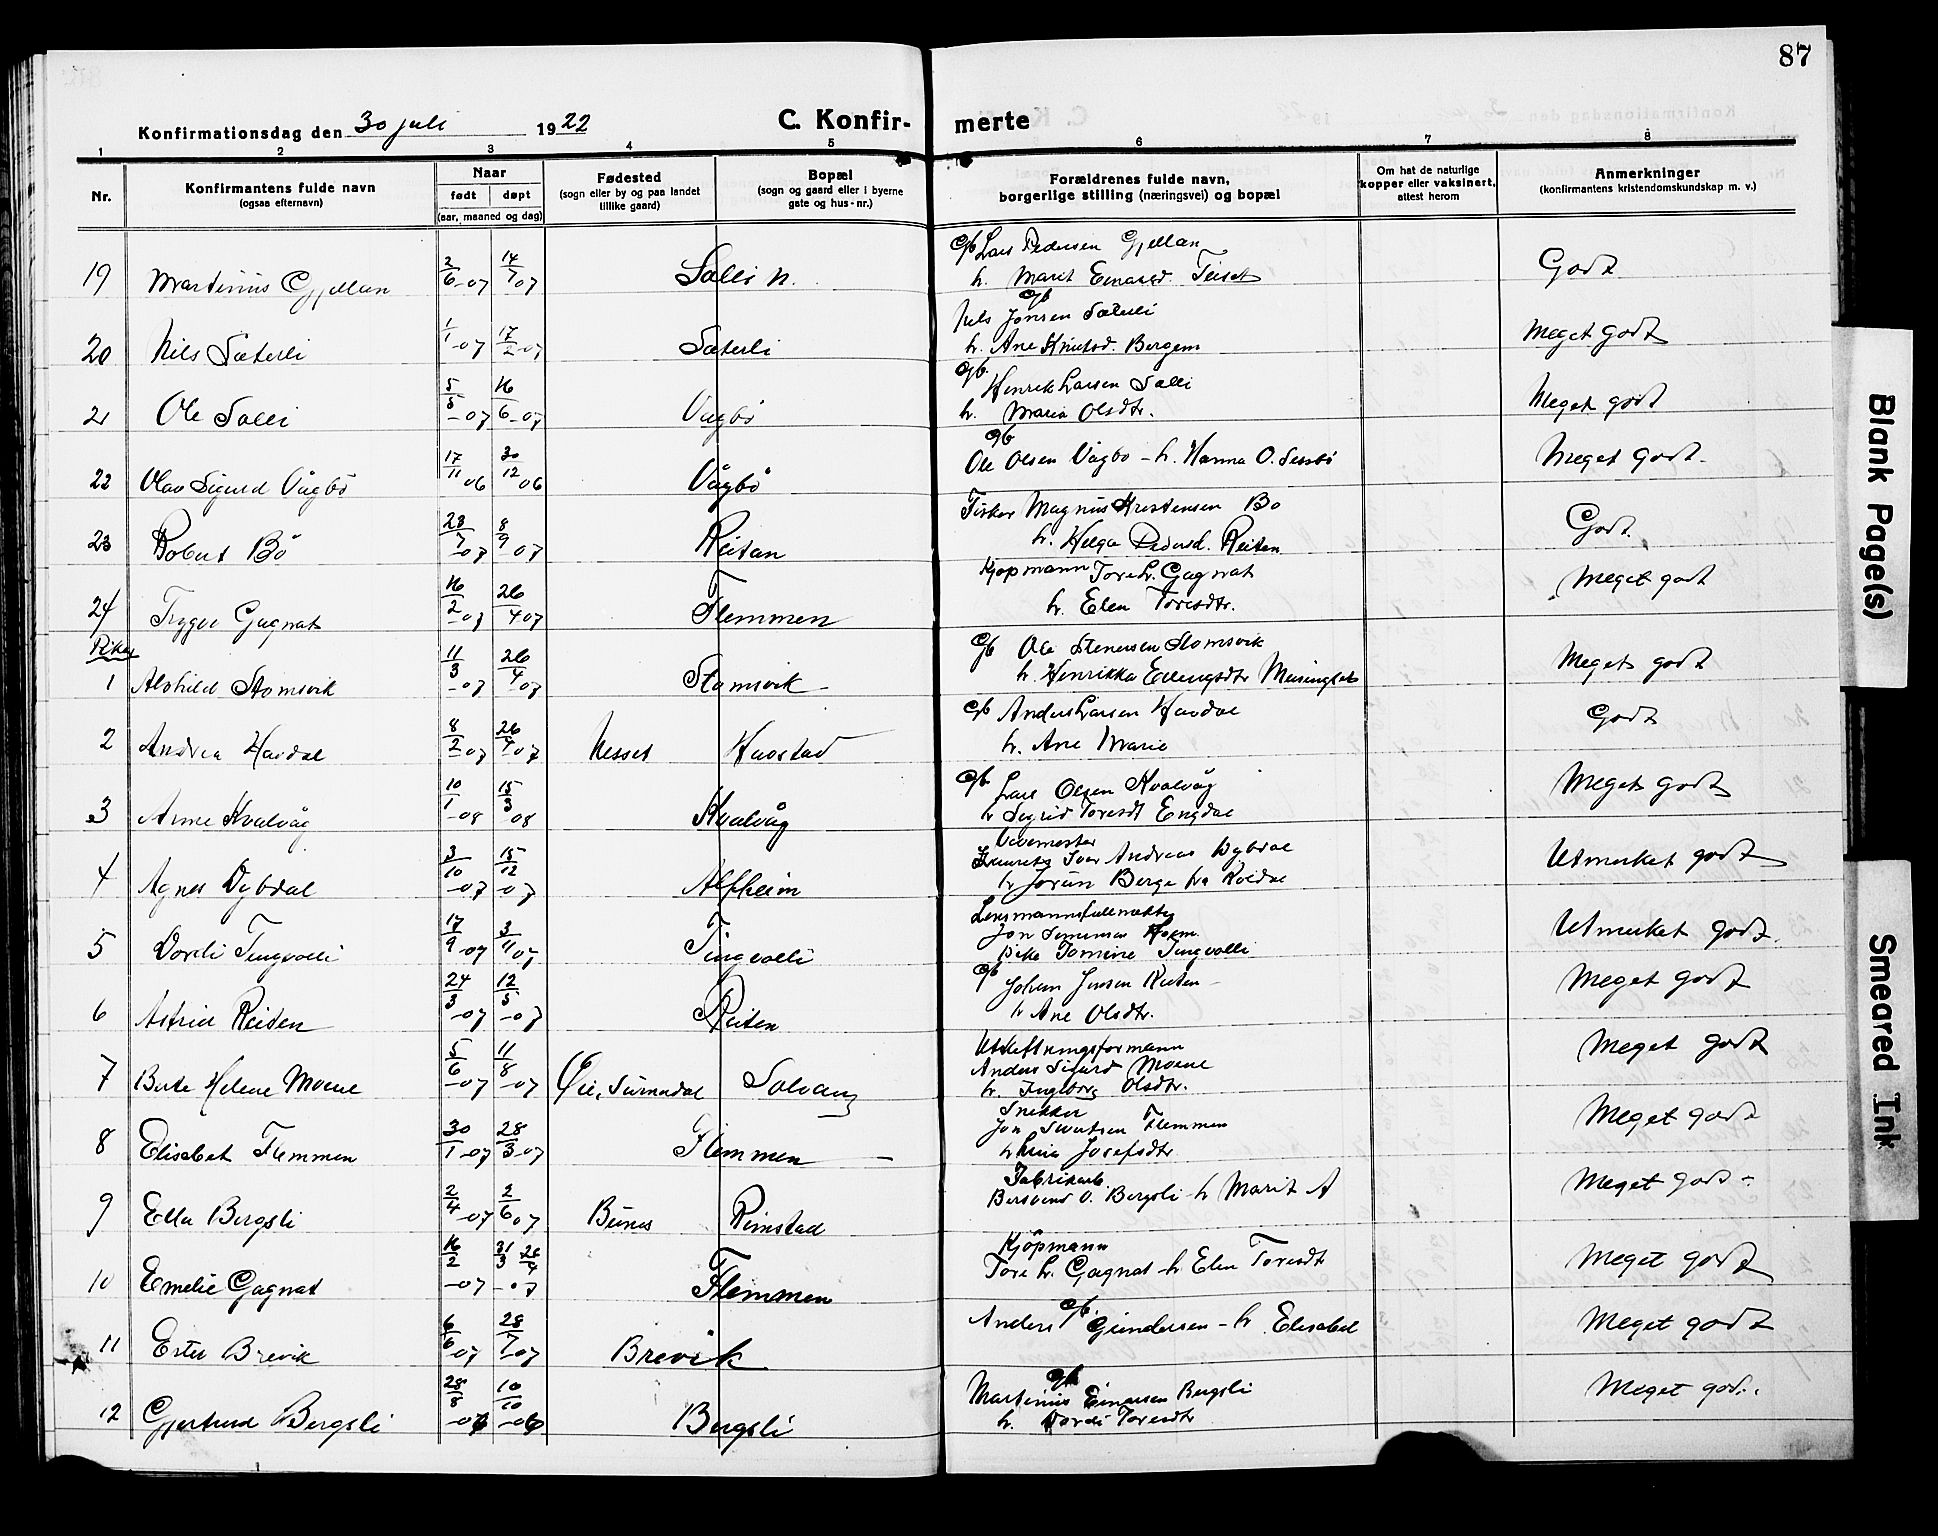 87
Konfirmationsdag den 30 juli 1922
C. Konfirmerte
1 2 3 4 5 6 7 8
Nr.
Konfirmantens fulde navn
(ogsaa efternavn)
Naar
født døpt
(aar, maaned og dag)
Fødested
(sogn eller by og paa landet
tillike gaard)
Bopæl
(sogn og gaard eller i byerne
gate og hus-nr.)
Forældrenes fulde navn,
borgerlige stilling (næringsvei) og bopæl
Om hat de naturlige
kopper eller vaksinert,
attest herom
Anmerkninger
(konfirmantens kristendomskundskap m. v.)
19 Martinius Gjellan 2/6-07 14/7 07 Salli n. G/b Lars Pedersen Gjellan
h. Marit Einarsd. Godt
20 Nils Sæterli 1/1-07 17/2-07 Sæterli G/b Nils Jonsen Sæterli
h. Ane Knutsd. Bergem Meget godt
21 Ole Salli 5/5-07 16/6-07 Vågbö G/b. Henrik Larsen Salli
h. Maria Olsdtr. Meget godt
22 Olav Sigurd Vågbö 17/11 06 30/12 06 Vågbö G/b Ole Olsen Vågbö - h. Hanna O. Meget godt.
23 Robert Bö 23/7-07 8/9 07 Reitan Fisker Magnus Kristensen Bö
h. Helga Pedersd. Reiten Godt.
24 Trygve Gagnat 16/2-07 26/4 07 Flemmen Kjöpmann Tore L. Gagnat
h. Elen Toresdtr. Meget godt
Piker
1 Alvhild Stomsvik 11/3-07 26/4 07 Stomsvik - G/b Ole Stenersen Stomsvik
h. Henrikka Erlingsdtr Meisingset Meget godt
2 Andrea Havdal 8/2-07 26/4-07 Nesset G/b Anders Larsen Havdal
h. Ane Marie Godt
3 Anne Kvalvåg 10/1-08 15/3 08 Kvalvåg G/b Lars Olsen Kvalvåg
h Sigrid Toresdt Engdal Meget godt
4 Agnes Dybdal 3/10-07 15/12-07 Alfheim Vevemester
Iver Andreas Dybdal
h Jorun Berge fra Röldal Utmerket godt
5 Dordi Tingvolli 17/9-07 3/11 07 Tingvolli Lensmannsfullmektig
Jon Simensen Holm
Pike Tomine Tingvolli Utmerket godt.
6 Astrid Reiten 24/3-07 12/5-07 Reiten G/b Johan Jensen Reiten -
h Ane Olsdtr. Meget godt
7 Berte Helene Moene 5/6-07 11/8-07 Öie, Surnadal Solvang Utskiftningsformann
Anders Sigurd Moene
h. Ingeborg Olsdtr. Meget godt
8 Elisabet Flemmen 30/1-07 28/3-07 Flemmen - Snekker
Jon Sivertsen Flemmen
h Josefsdtr. Meget godt
9 Ella Bergsli 2/4-07 2/6 07 Bunes Rimstad Fabrikarb.
O. Bergsli - h Marit A Meget godt -
10 Emelie Gagnat 16/2-07 31/3 26/4-07 Flemmen Kjöpmann
Tore L. Gagnat - h Elen Toresdt Meget godt
11 Ester Brevik 6/6 07 28/7-07 Brevik G/b. Anders Gundersen - h. Elisabet Meget godt
12 Gjertrud Bergsli 28/8-06 10/10-06 Bergsli G/b Martinus Einarsen Bergsli
h. Dordi Toresdtr Meget godt.
Blank Page(s)
Smeared Ink